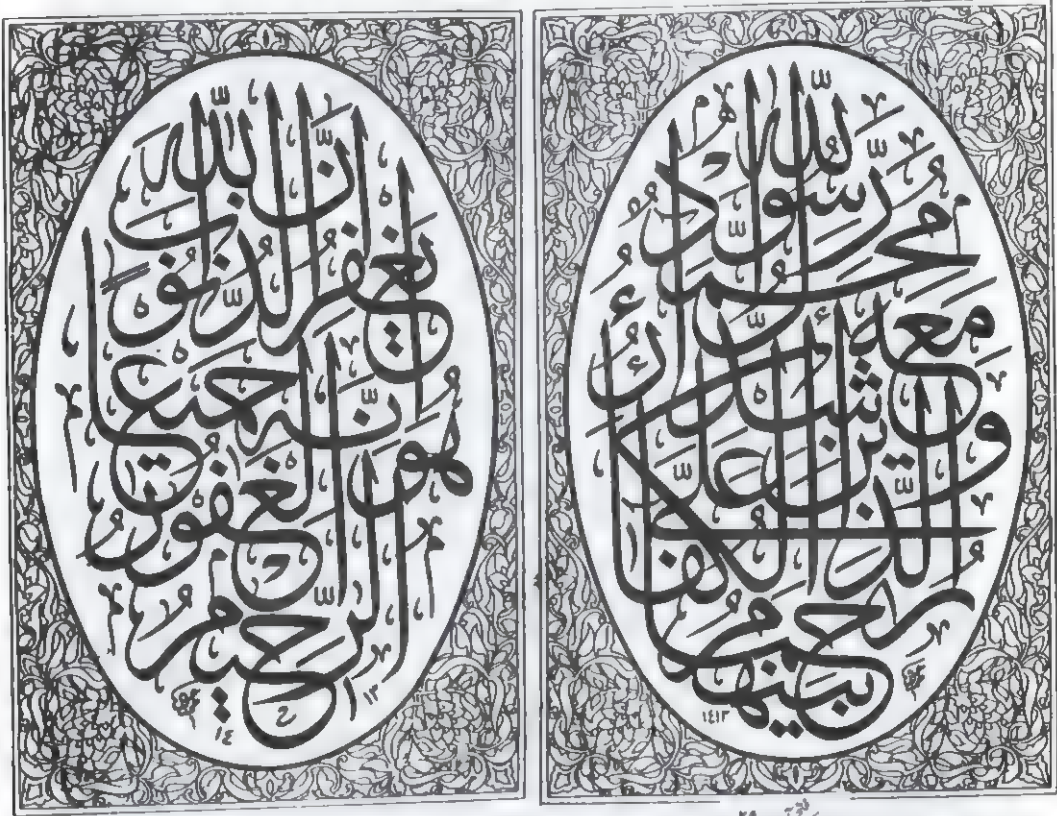 محمد رسول الله
والذين معه أشداء على الكفار
رحماء بينهم
١٤١٣
إن الله
يغفر الذنوب
جميعا إنه هو
الغفور
الرحيم
١٤١٣
٢٩